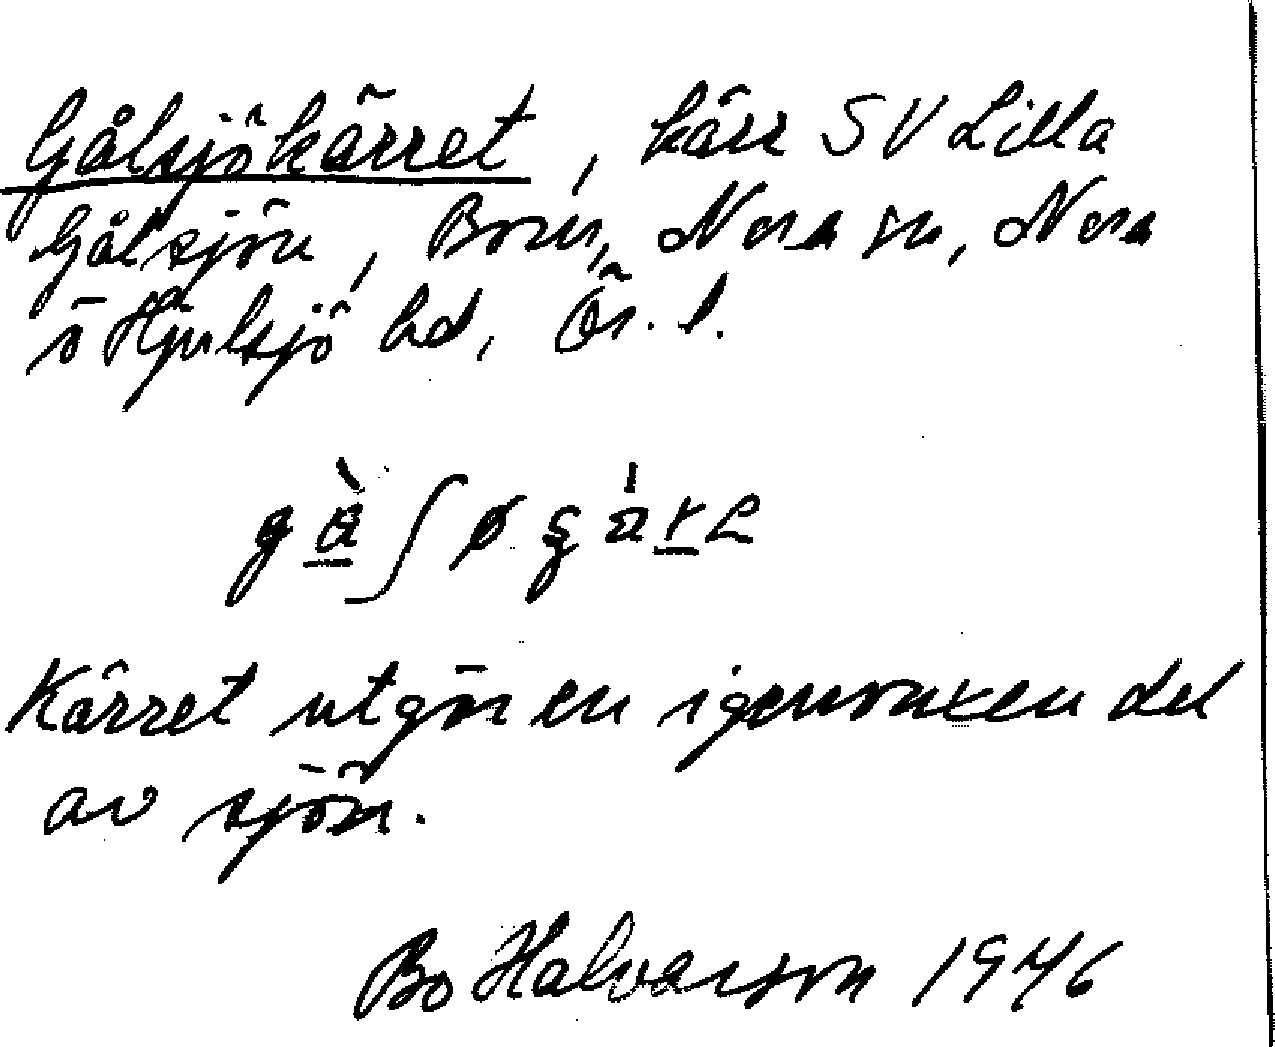 Gålsjökärret, kärr SV Lilla
Gålsjön, Born, Nora sn, Nora
o Hjulsjö hd, Ör. l.
Kärret utgör en igenvuxen del
av sjön.
Bo Halvarson 1946